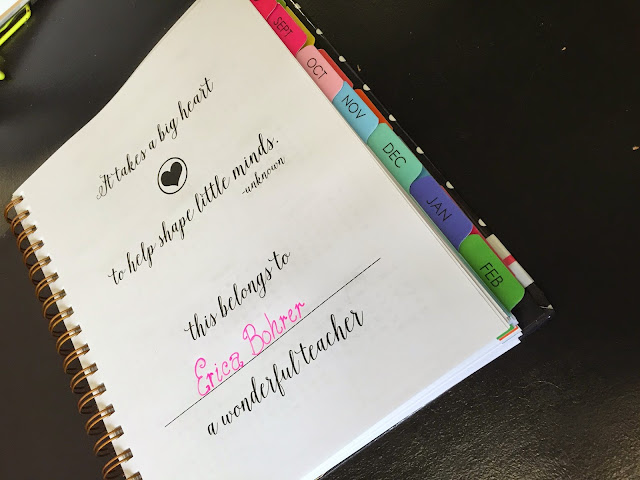 It takes a big heart
to help shape little minds.
-unknown
this belongs to
Erica Bohrer
a wonderful teacher
SEPT
OCT
NOV
DEC
JAN
FEB